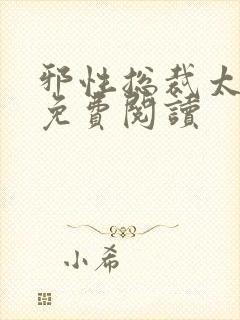 邪性总裁太
免費閱讀
小希